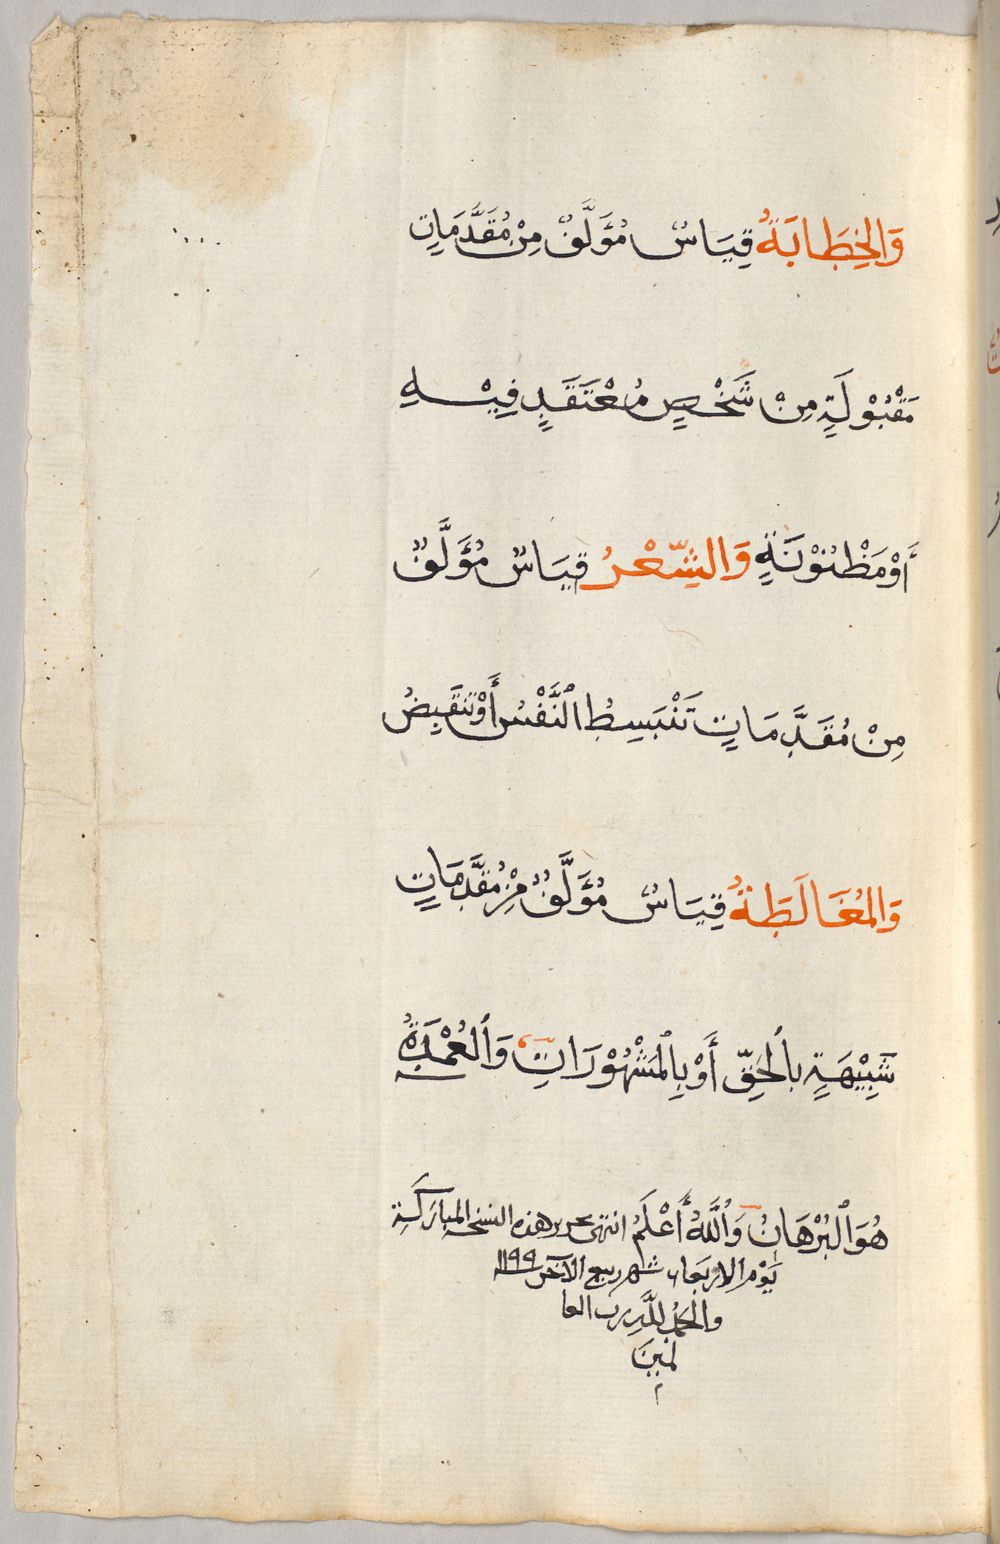 وَالخِطَابَةُ قِيَاسٌ مُؤَلَّفٌ مِنْ مُقَدَّمَاتٍ
مَقْبُوْلَةٍ مِنْ شَخْصٍ مُعْتَقَدٍ فِيْهِ
أَوْ مَظْنُوْنَةٍ وَالشِّعْرُ قِيَاسٌ مُؤَلَّفٌ
مِنْ مُقَدَّمَاتٍ تَنْبَسِطُ النَّفْسُ أَوْ تَنْقَبِضُ
وَالمُغَالَطَةُ قِيَاسٌ مُؤَلَّفٌ مِنْ مُقَدَّمَاتٍ
شَبِيْهَةٍ بالْحَقِّ أَوْ بِالْمَشْهُوْرَاتِ وَالْعُمْدَةُ
هُوَ الْبُرْهَانُ وَاللَّهُ أَعْلَمُ انتهى تحرير هذه النسخة المباركة
يَوْم الاربعاء شهر ربيع الآخر ١١٩٩
والحمد للَّهِ رب العا
لمين
م